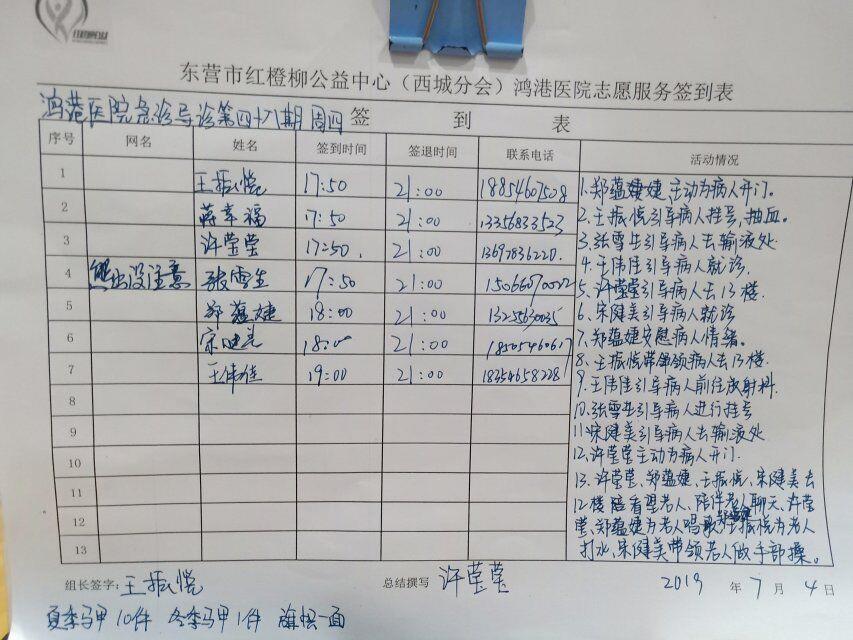 东营市红橙柳公益中心（西城分会）鸿港医院志愿服务签到表
鸿港医院急诊导诊第四十八期 周四 签 到 表
序号 网名 姓名 签到时间 签退时间 联系电话 活动情况
1 王振悦 17:50 21:00 18854607508
2 蒋幸福 17:50 21:00 13356833523
3 许莹莹 17:50. 21:00 13697836220.
4 熊出没注意 张雪生 17:50 21:00 15066070022
5 郑蕴婕 18:00 21:00 13255630035
6 宋健美 18:00 21:00 18505460617
7 王伟佳 19:00 21:00 18354658228
8
9
10
11
12
13
1.郑蕴婕婕、主动为病人开门。
2.王振悦引导病人挂号,抽血。
3.张雪生引导病人去输液处.
4.王伟佳引导病人就诊.
5.许莹莹引导病人去13楼.
6.宋健美引导病人就诊
7.郑蕴婕安慰病人情绪。
8.王振悦带领病人去13楼.
9.王伟佳引导病人前往放射科.
10.张雪生引导病人进行挂号
11宋健美引导病人去输液处
12.许莹莹主动为病人开门.
13.许莹莹、郑蕴婕、王振悦、宋健美去
12楼陪看望老人、陪伴老人聊天、许莹
莹、郑蕴婕为老人唱歌、王振悦为老人
打水、宋健美带领老人做手部操。
组长签字:王振悦 总结撰写 许莹莹 2019 年 7 月 4 日
夏季马甲10件 冬季马甲1件 旗帜一面